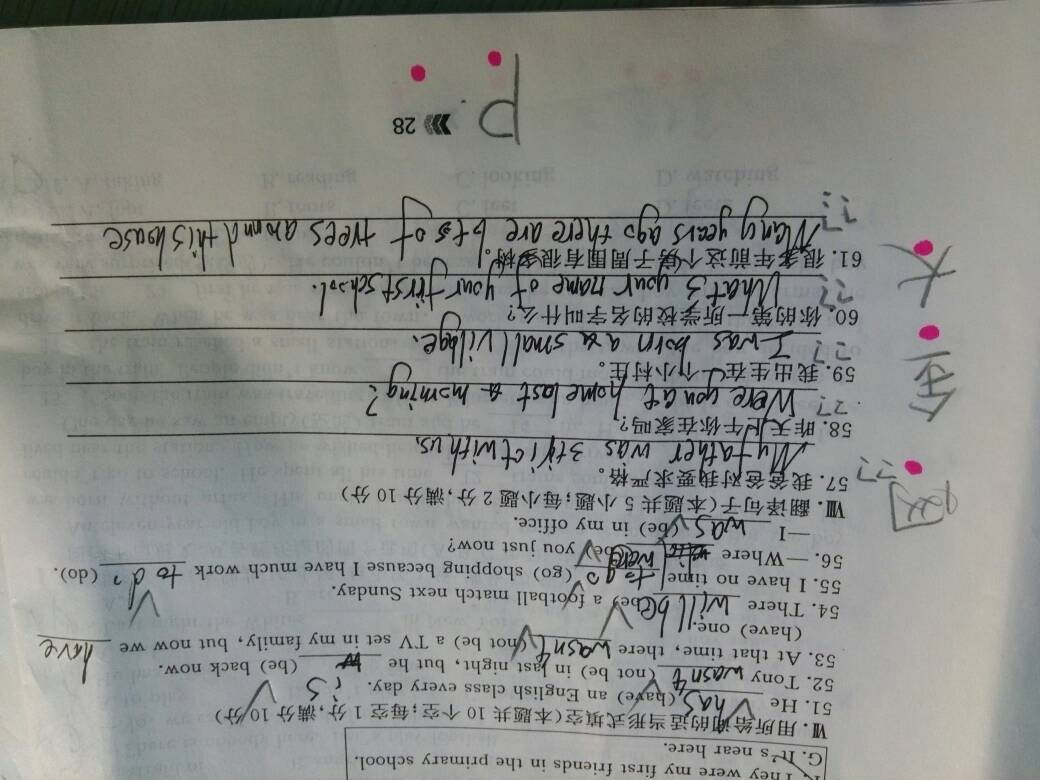 They were my first friends in the primary school.
G. It's near here.
Ⅶ. 用所给词的适当形式填空(本题共 10 个空;每空 1 分,满分 10 分)
51. He has (have) an English class every day.
52. Tony wasn't (not be) in last night, but he is (be) back now.
53. At that time, there wasn't (not be) a TV set in my family, but now we have
(have) one.
54. There will be (be) a football match next Sunday.
55. I have no time to go (go) shopping because I have much work to do (do).
56. —Where were (be) you just now?
—I was (be) in my office.
Ⅷ. 翻译句子(本题共 5 小题;每小题 2 分,满分 10 分)
57. 我爸爸对我要求严格。
My father was strict with us.
58. 昨天上午你在家吗?
Were you at home last a morning?
59. 我出生在一个小村庄。
I was born a a small village.
60. 你的第一所学校的名字叫什么?
What's your name of your first school.
61. 很多年前这个房子周围有很多树。
Many years ago there are lots of trees around this house
28